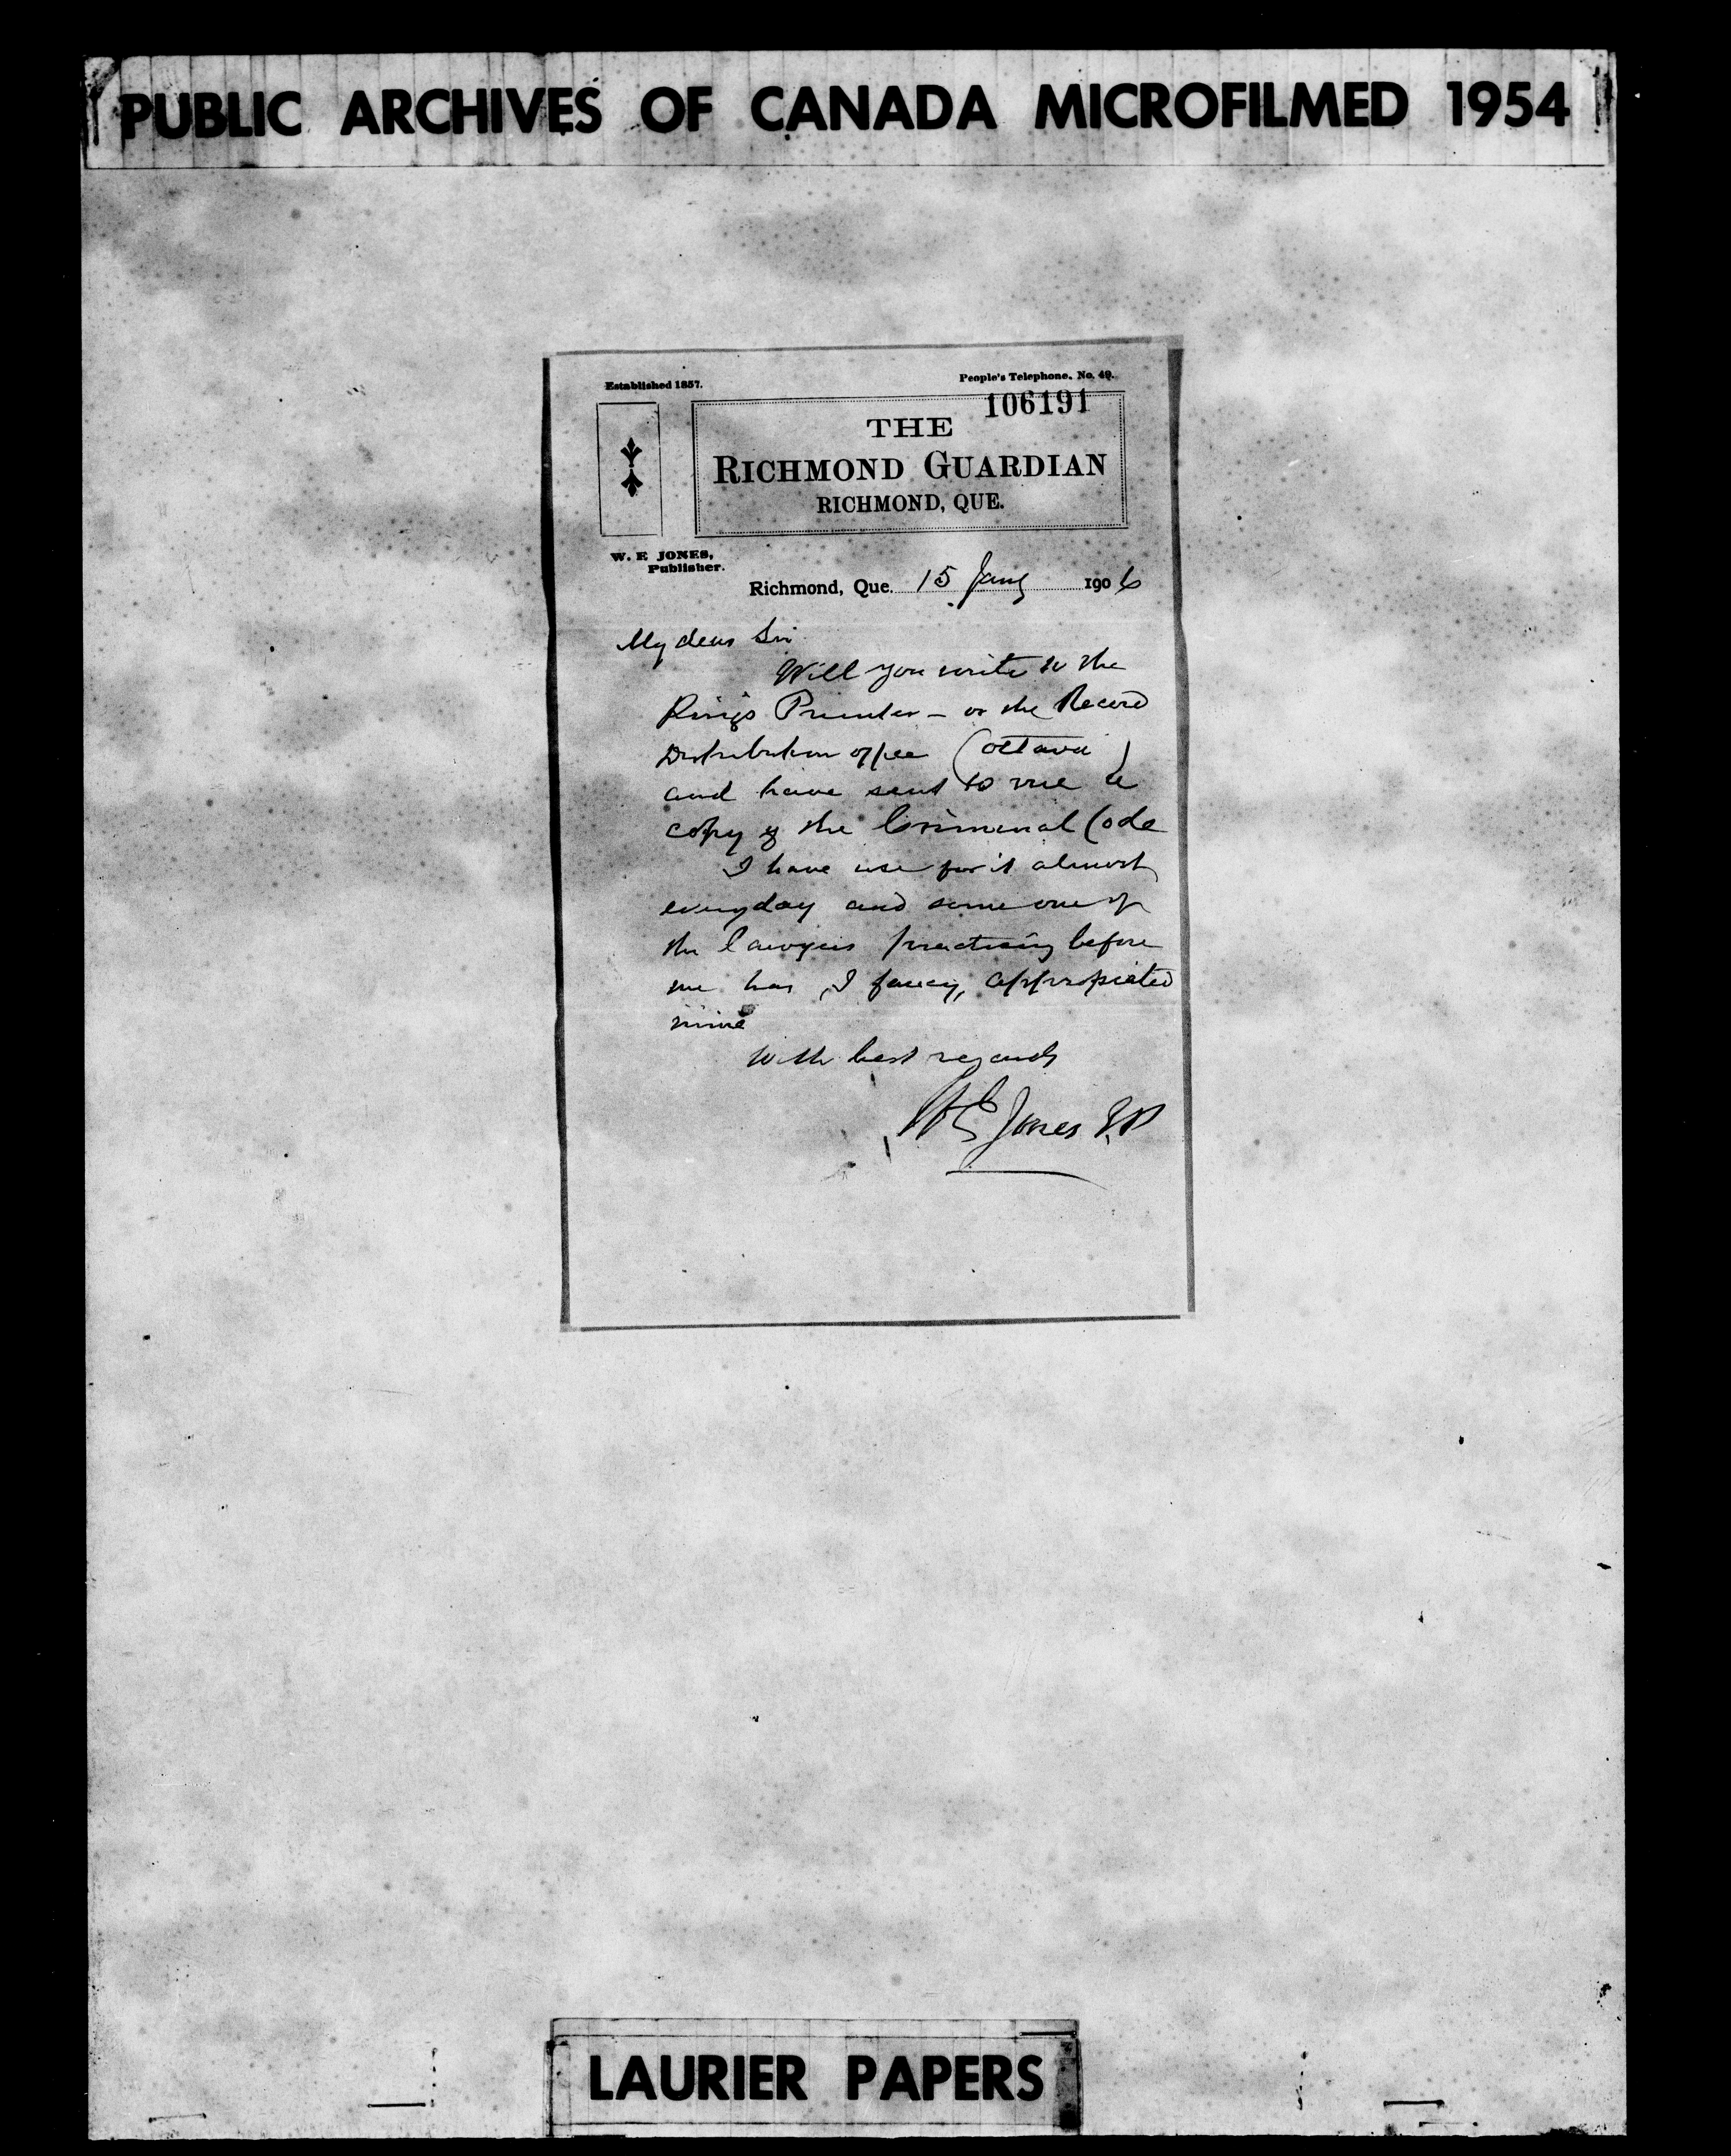 PUBLIC ARCHIVES OF CANADA MICROFILMED 1954
Established 1857.
People's Telephone, No. 49.
106191
THE
RICHMOND GUARDIAN
RICHMOND, QUE.
W. E JONES,
Publisher.
Richmond, Que. 15 Jany 1906
My dear Sir
Will you write to the
King's Printer - or the Record
Distribution office (Ottawa)
and have sent to me a
copy of the Criminal Code
I have use for it almost
everyday and some one of
the lawyers practising before
me has, I fancy, appropriated
mine
With best regards
W E Jones J.P
LAURIER PAPERS